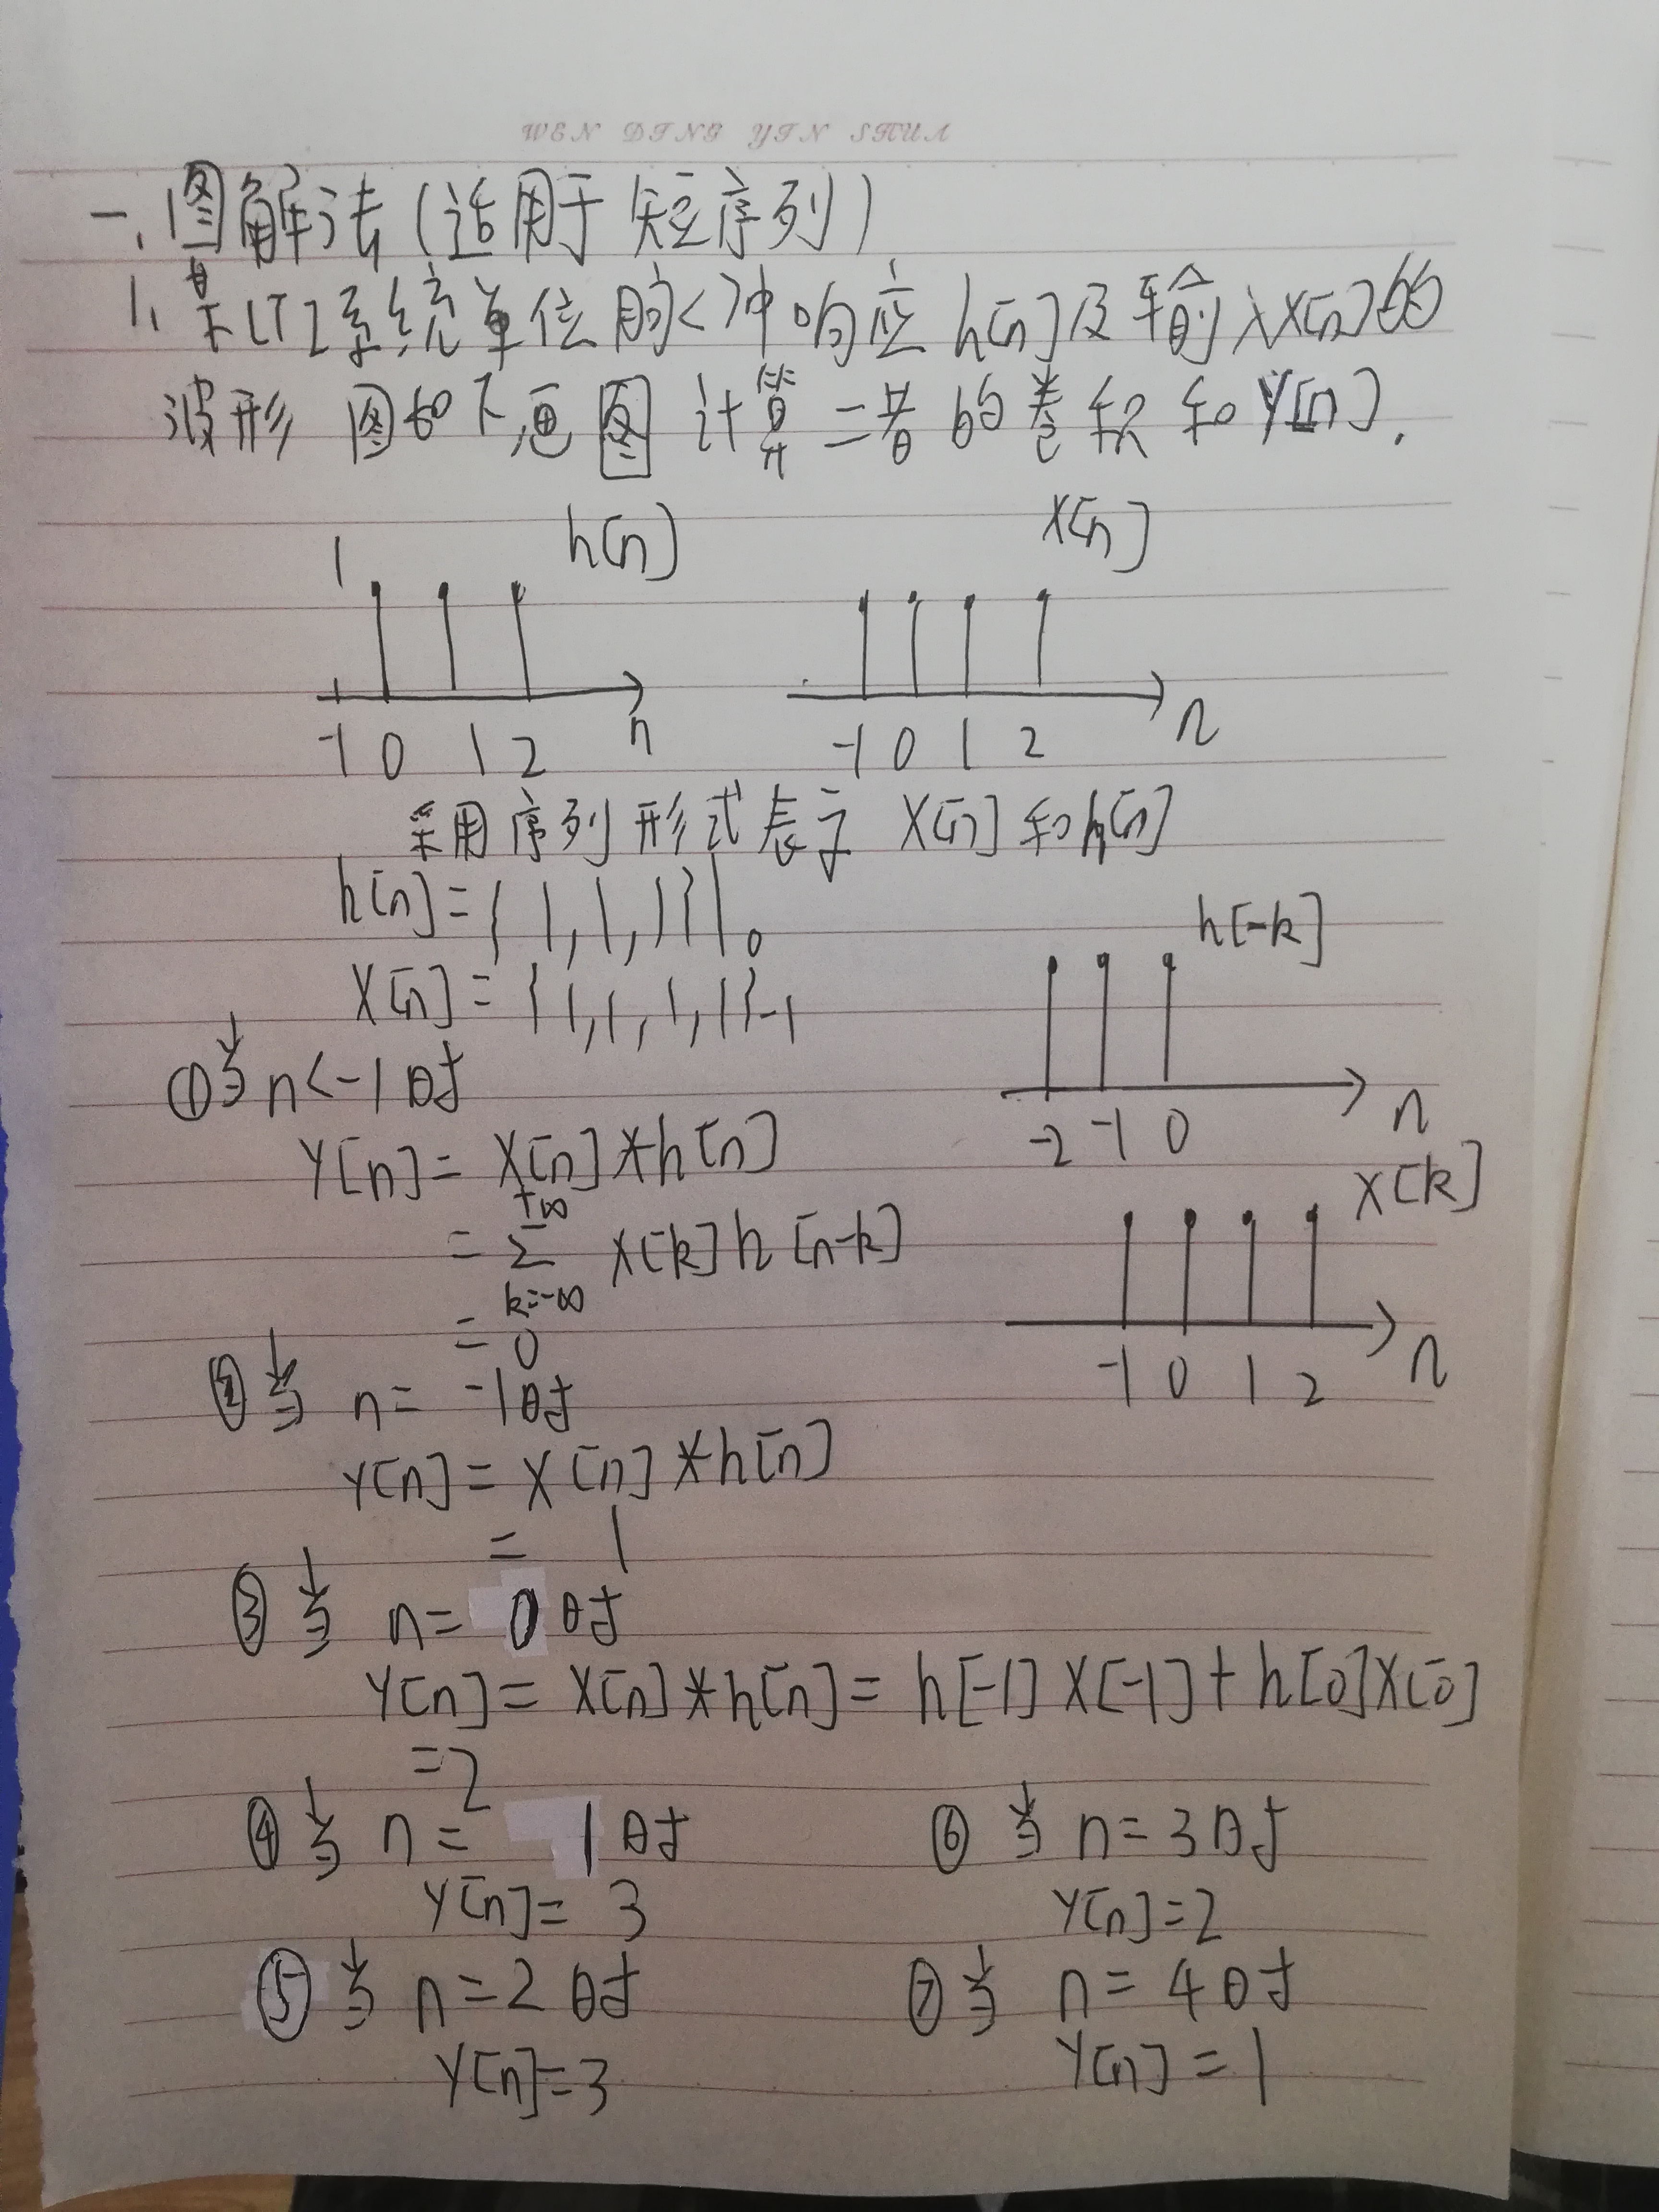 WEN DING YIN SHUA
一、图解法(适用于短序列)
1、某LTI系统单位脉冲响应h[n]及输入x[n]的
波形图如下,画图计算二者的卷积和Y[n].
1 h[n] x[n]
-1 0 1 2 n -1 0 1 2 n
采用序列形式表示 x[n]和h[n]
h[n]={1,1,1}|₀
x[n]={1,1,1,1}₋₁
h[-k]
-2 -1 0 n
①当n<-1时
Y[n]=x[n]*h[n]
=∑ x[k]h[n-k]
+∞
k=-∞
=0
x[k]
-1 0 1 2 n
②当 n= -1时
Y[n]=x[n]*h[n]
= 1
③当 n= 0时
Y[n]=x[n]*h[n]=h[-1]x[-1]+h[0]x[0]
=2
④当 n= 1时
Y[n]= 3
⑤当 n=2时
Y[n]=3
⑥当 n=3时
Y[n]=2
⑦当 n=4时
Y[n]=1